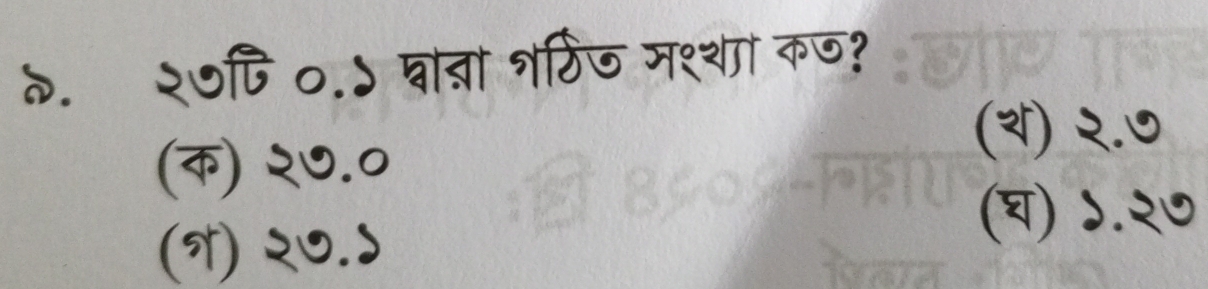 ৯. ২৩টি ০.১ দ্বারা গঠিত সংখ্যা কত?
(ক) ২৩.০ (খ) ২.৩
(গ) ২৩.১ (ঘ) ১.২৩